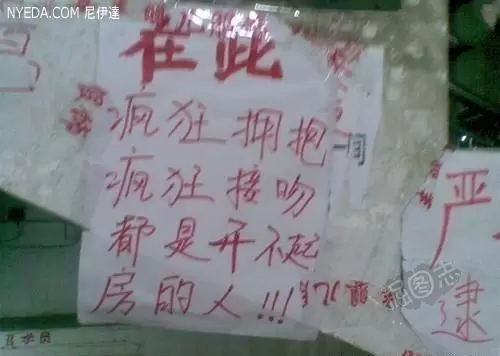 NYEDA.COM 尼伊達
在此
疯狂拥抱
疯狂接吻
都是开不起
房的人!!!
严
逮
掘图志
学员